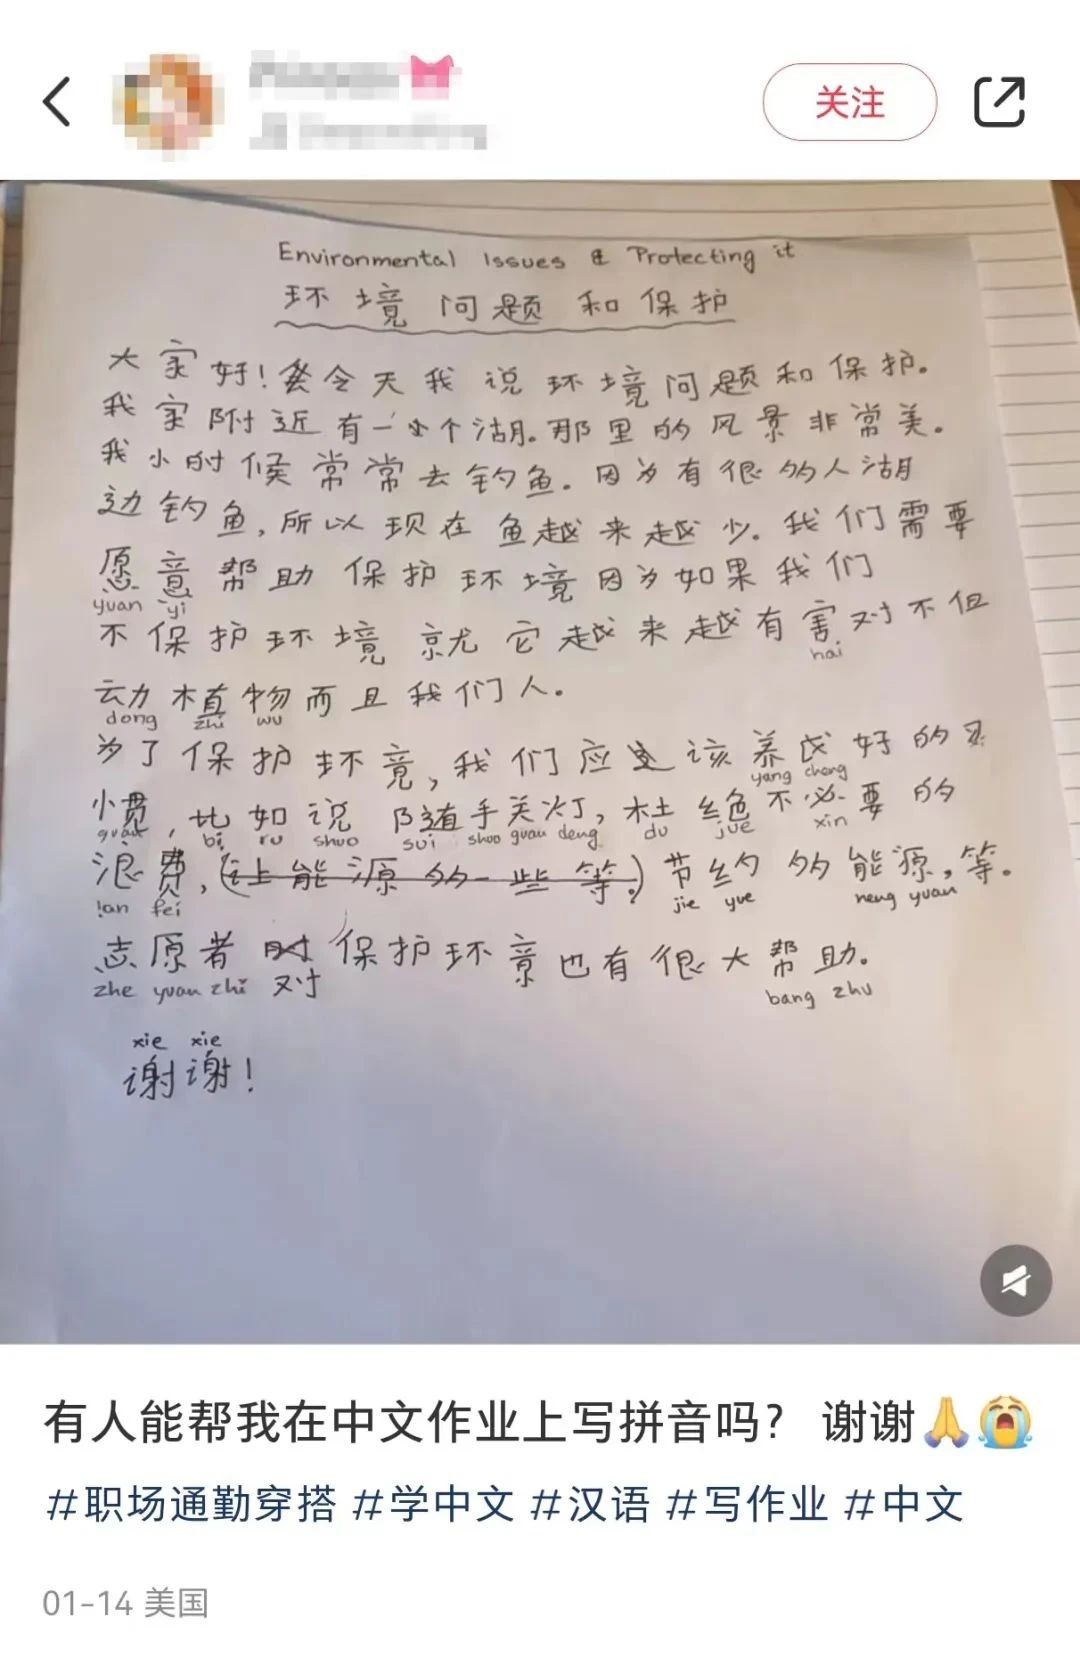 关注
Environmental Issues & Protecting it
环境问题和保护
大家好!今天我说环境问题和保护。
我家附近有一个湖。那里的风景非常美。
我小时候常常去钓鱼。因为有很多人湖
边钓鱼,所以现在鱼越来越少。我们需要
愿意帮助保护环境因为如果我们
yuan yi
不保护环境就它越来越有害对不但
hai
动植物而且我们人。
dong zhi wu
为了保护环竟,我们应该养成好的习
yang cheng
惯,比如说随手关灯,杜绝不必要的
guan bi ru shuo sui shoo guan deng du jue xin
浪费,(让能源多一些等。)节约多能源,等。
lan fei jie yue neng yuan
志愿者 保护环竟也有很大帮助。
zhe yuan zhi 对 bang zhu
xie xie
谢谢!
有人能帮我在中文作业上写拼音吗? 谢谢🙏😭
#职场通勤穿搭 #学中文 #汉语 #写作业 #中文
01-14 美国